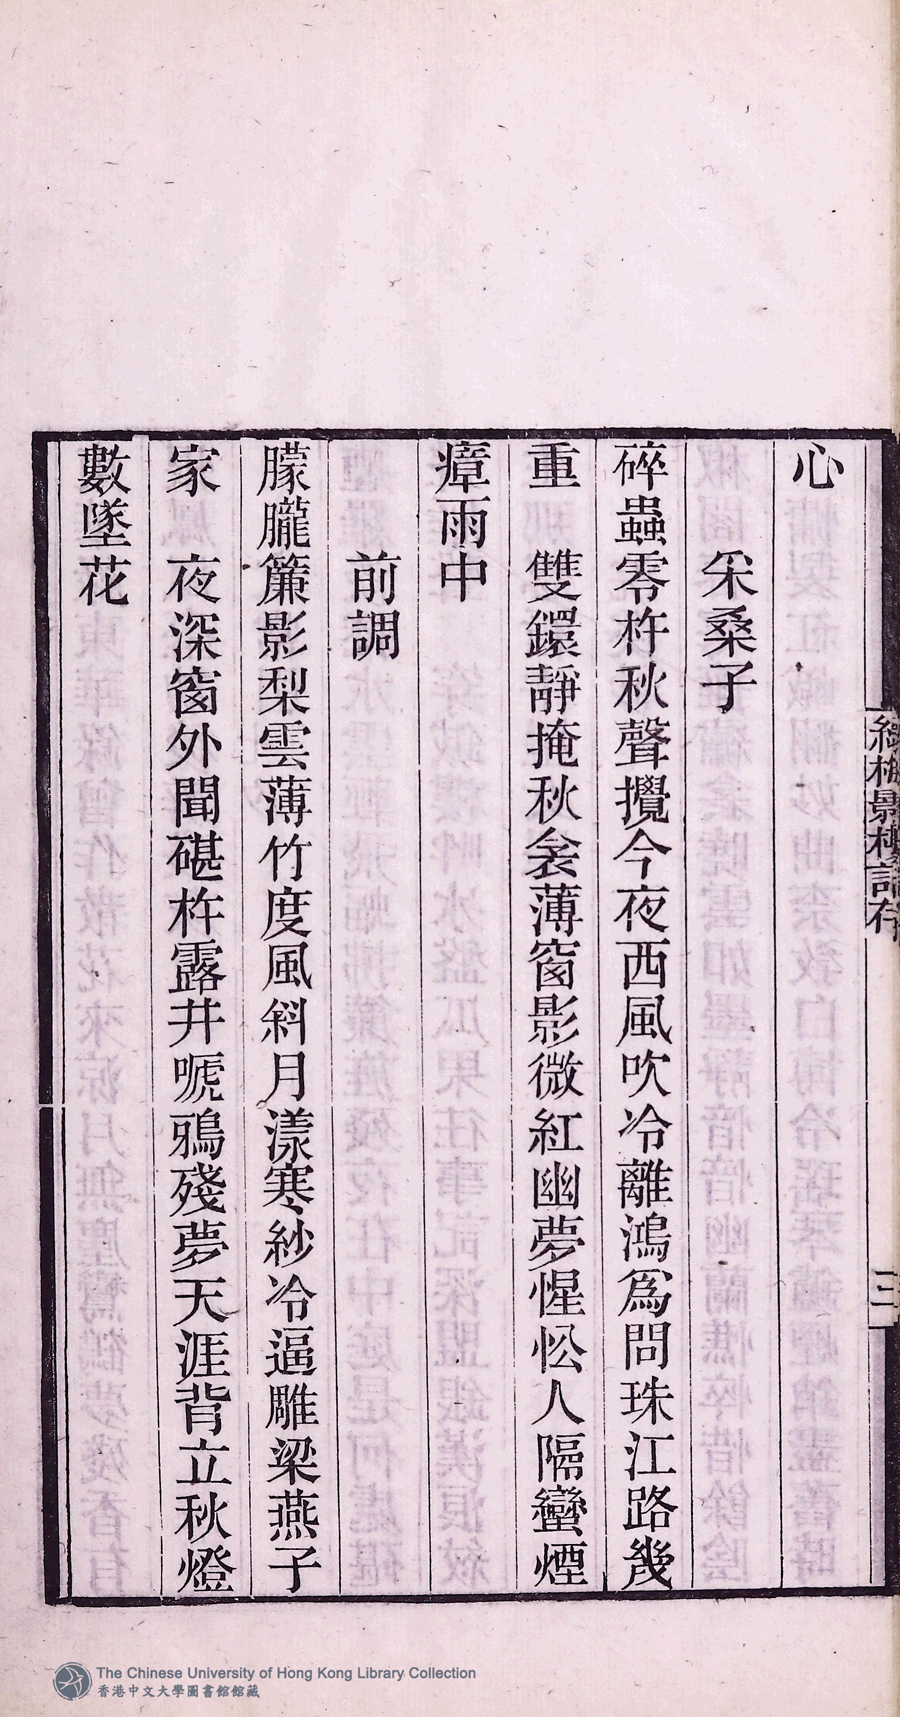 心
采桑子
碎蟲零杵秋聲攪今夜西風吹冷離鴻爲問珠江路幾
重　雙鐶靜掩秋衾薄窗影微紅幽夢惺忪人隔蠻煙
瘴雨中
前調
朦朧簾影梨雲薄竹度風斜月漾寒紗冷逼雕梁燕子
家　夜深窗外聞碪杵露井嗁鴉殘夢天涯背立秋燈
數墜花
梅影樓詞存
三
The Chinese University of Hong Kong Library Collection
香港中文大學圖書館館藏